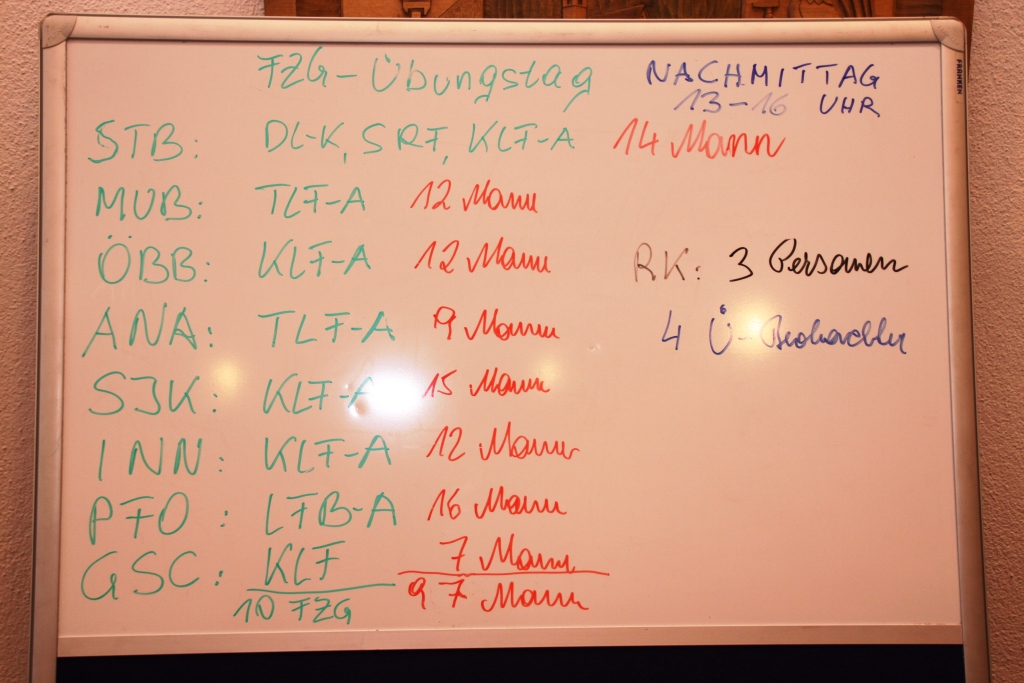 FZG-Übungstag NACHMITTAG
13-16 UHR
STB: DL-K, SRF, KLF-A 14 Mann
MUB: TLF-A 12 Mann
ÖBB: KLF-A 12 Mann RK: 3 Personen
ANA: TLF-A 9 Mann 4 Ü-Beobachter
SJK: KLF-A 15 Mann
INN: KLF-A 12 Mann
PFO: LFB-A 16 Mann
GSC: KLF 7 Mann
10 FZG 97 Mann
FRANKEN